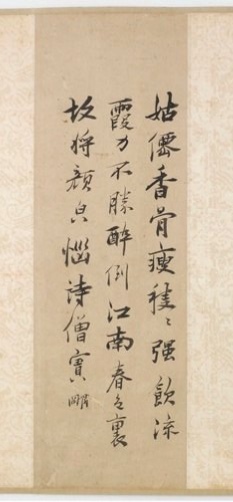 姑僊香骨瘦稜〻強飲流
霞力不勝醉倒江南春色裏
故將顏色惱詩僧寳